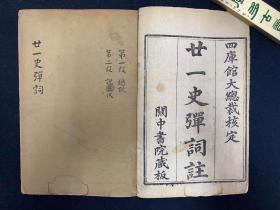 四庫館大總裁核定
廿一史彈詞註
關中書院藏板
第一段 總說
第二段 說三代
廿一史彈詞